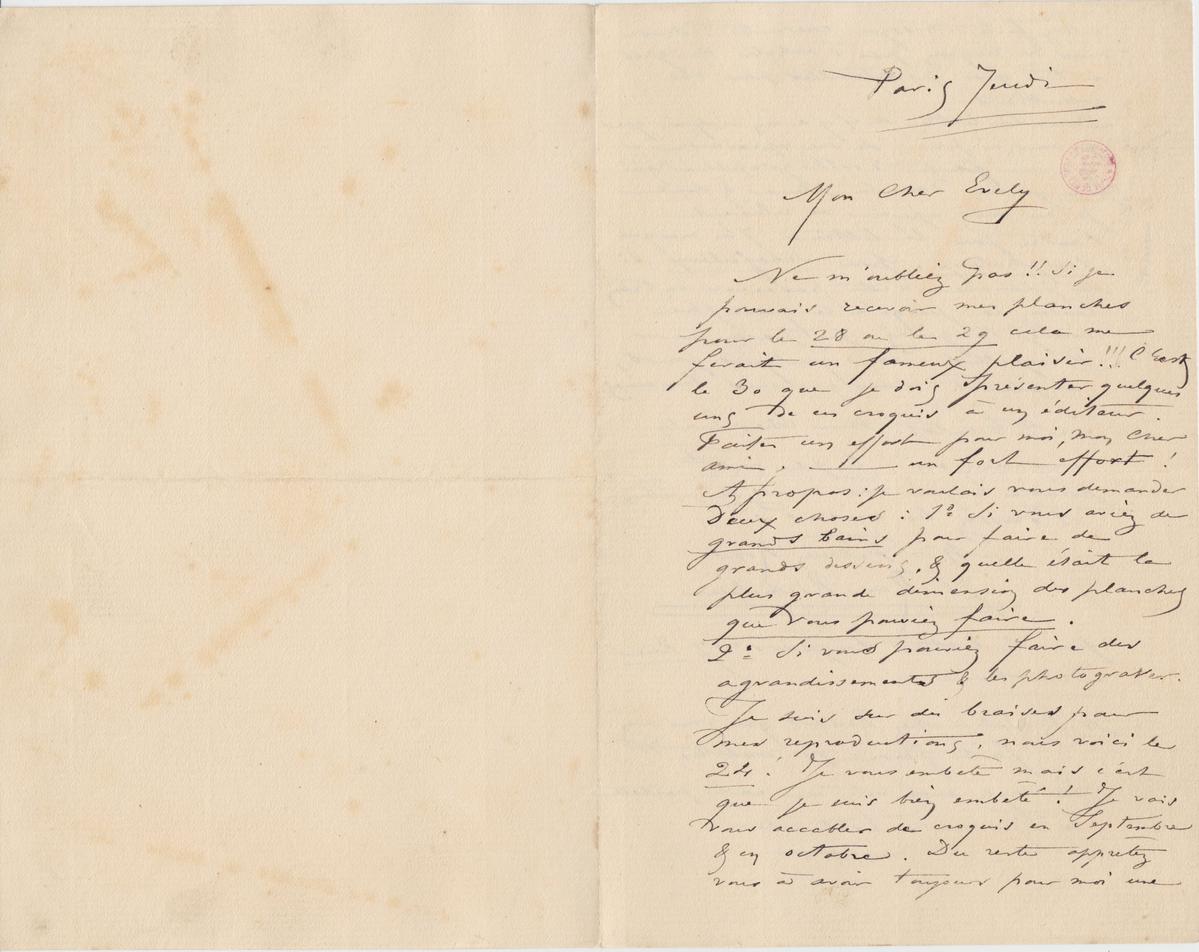 Paris Jeudi
Mon Cher Evely
Ne m'oubliez pas !! Si je
pouvais recevoir mes planches
pour le 28 ou le 29 cela me
ferait un fameux plaisir !!! C'est
le 30 que je dois présenter quelques
uns de ces croquis à un éditeur.
Faites un effort pour moi, mon cher
ami, — un fort effort !
A propos : je voulais vous demander
deux choses : 1º Si vous aviez de
grands bains pour faire de
grands dessins, & quelle était la
plus grande dimension des planches
que vous pouviez faire.
2º Si vous pouviez faire des
agrandissements & les photograver.
Je suis sur des braises pour
mes reproductions, nous voici le
24 ! Je vous embete mais c'est
que je suis bien embeté ! Je vais
vous accabler de croquis en Septembre
& en octobre. Du reste appretez
vous à avoir toujours pour moi une